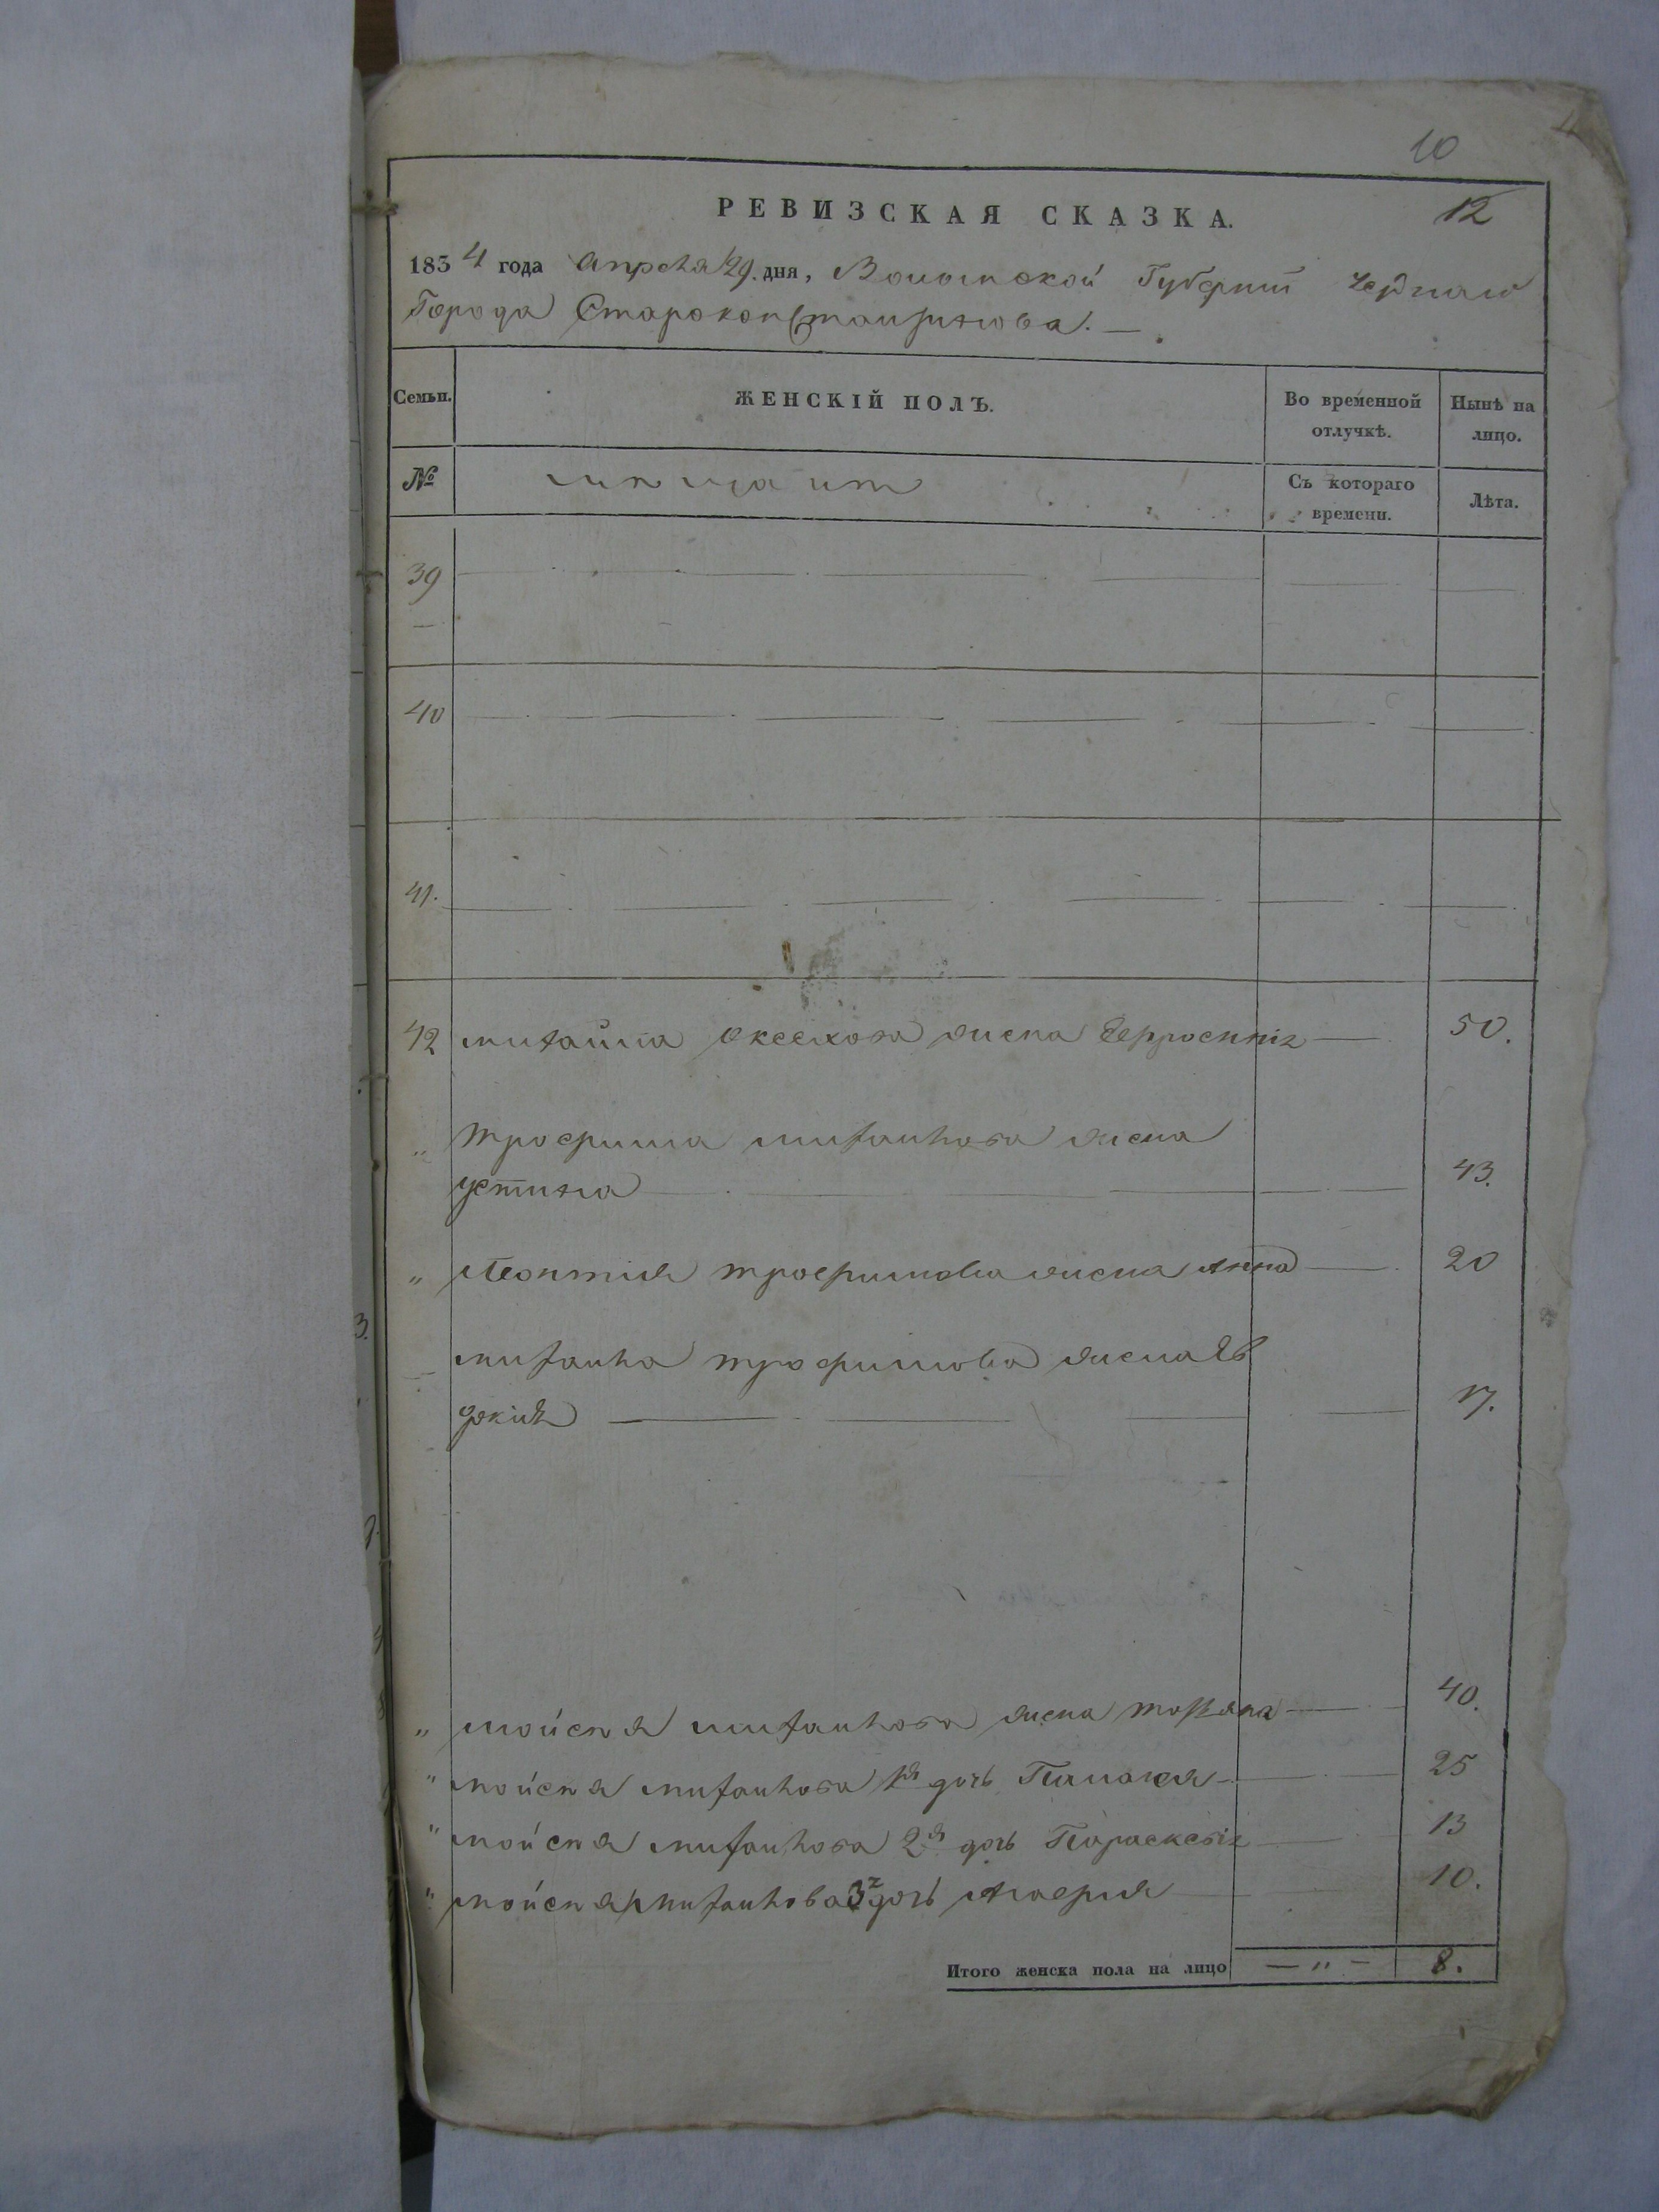 10
РЕВИЗСКАЯ СКАЗКА.
12
1834 года Апреля 29. дня, Волынской Губернии
Города Староконстантинова. —
Семьи.
ЖЕНСКІЙ ПОЛЪ.
Во временной отлучкѣ.
Нынѣ на лицо.
№
мещанит
Съ котораго времени.
Лѣта.
39
40
41.
42 михайла жена Ефросинія — 50.
" трофима михайлова жена
устина — 43.
" Леонтия трофимова жена Анна — 20
михайла трофимова жена Ев
докия — 17.
" мойсея михайлова жена татяна — 40.
" мойсея михайлова 1я дочь Пелагея — 25
" мойсея михайлова 2я дочь Параскевія — 13
" мойсея михайлова 3я дочь — 10.
Итого женска пола на лицо — " — 8.